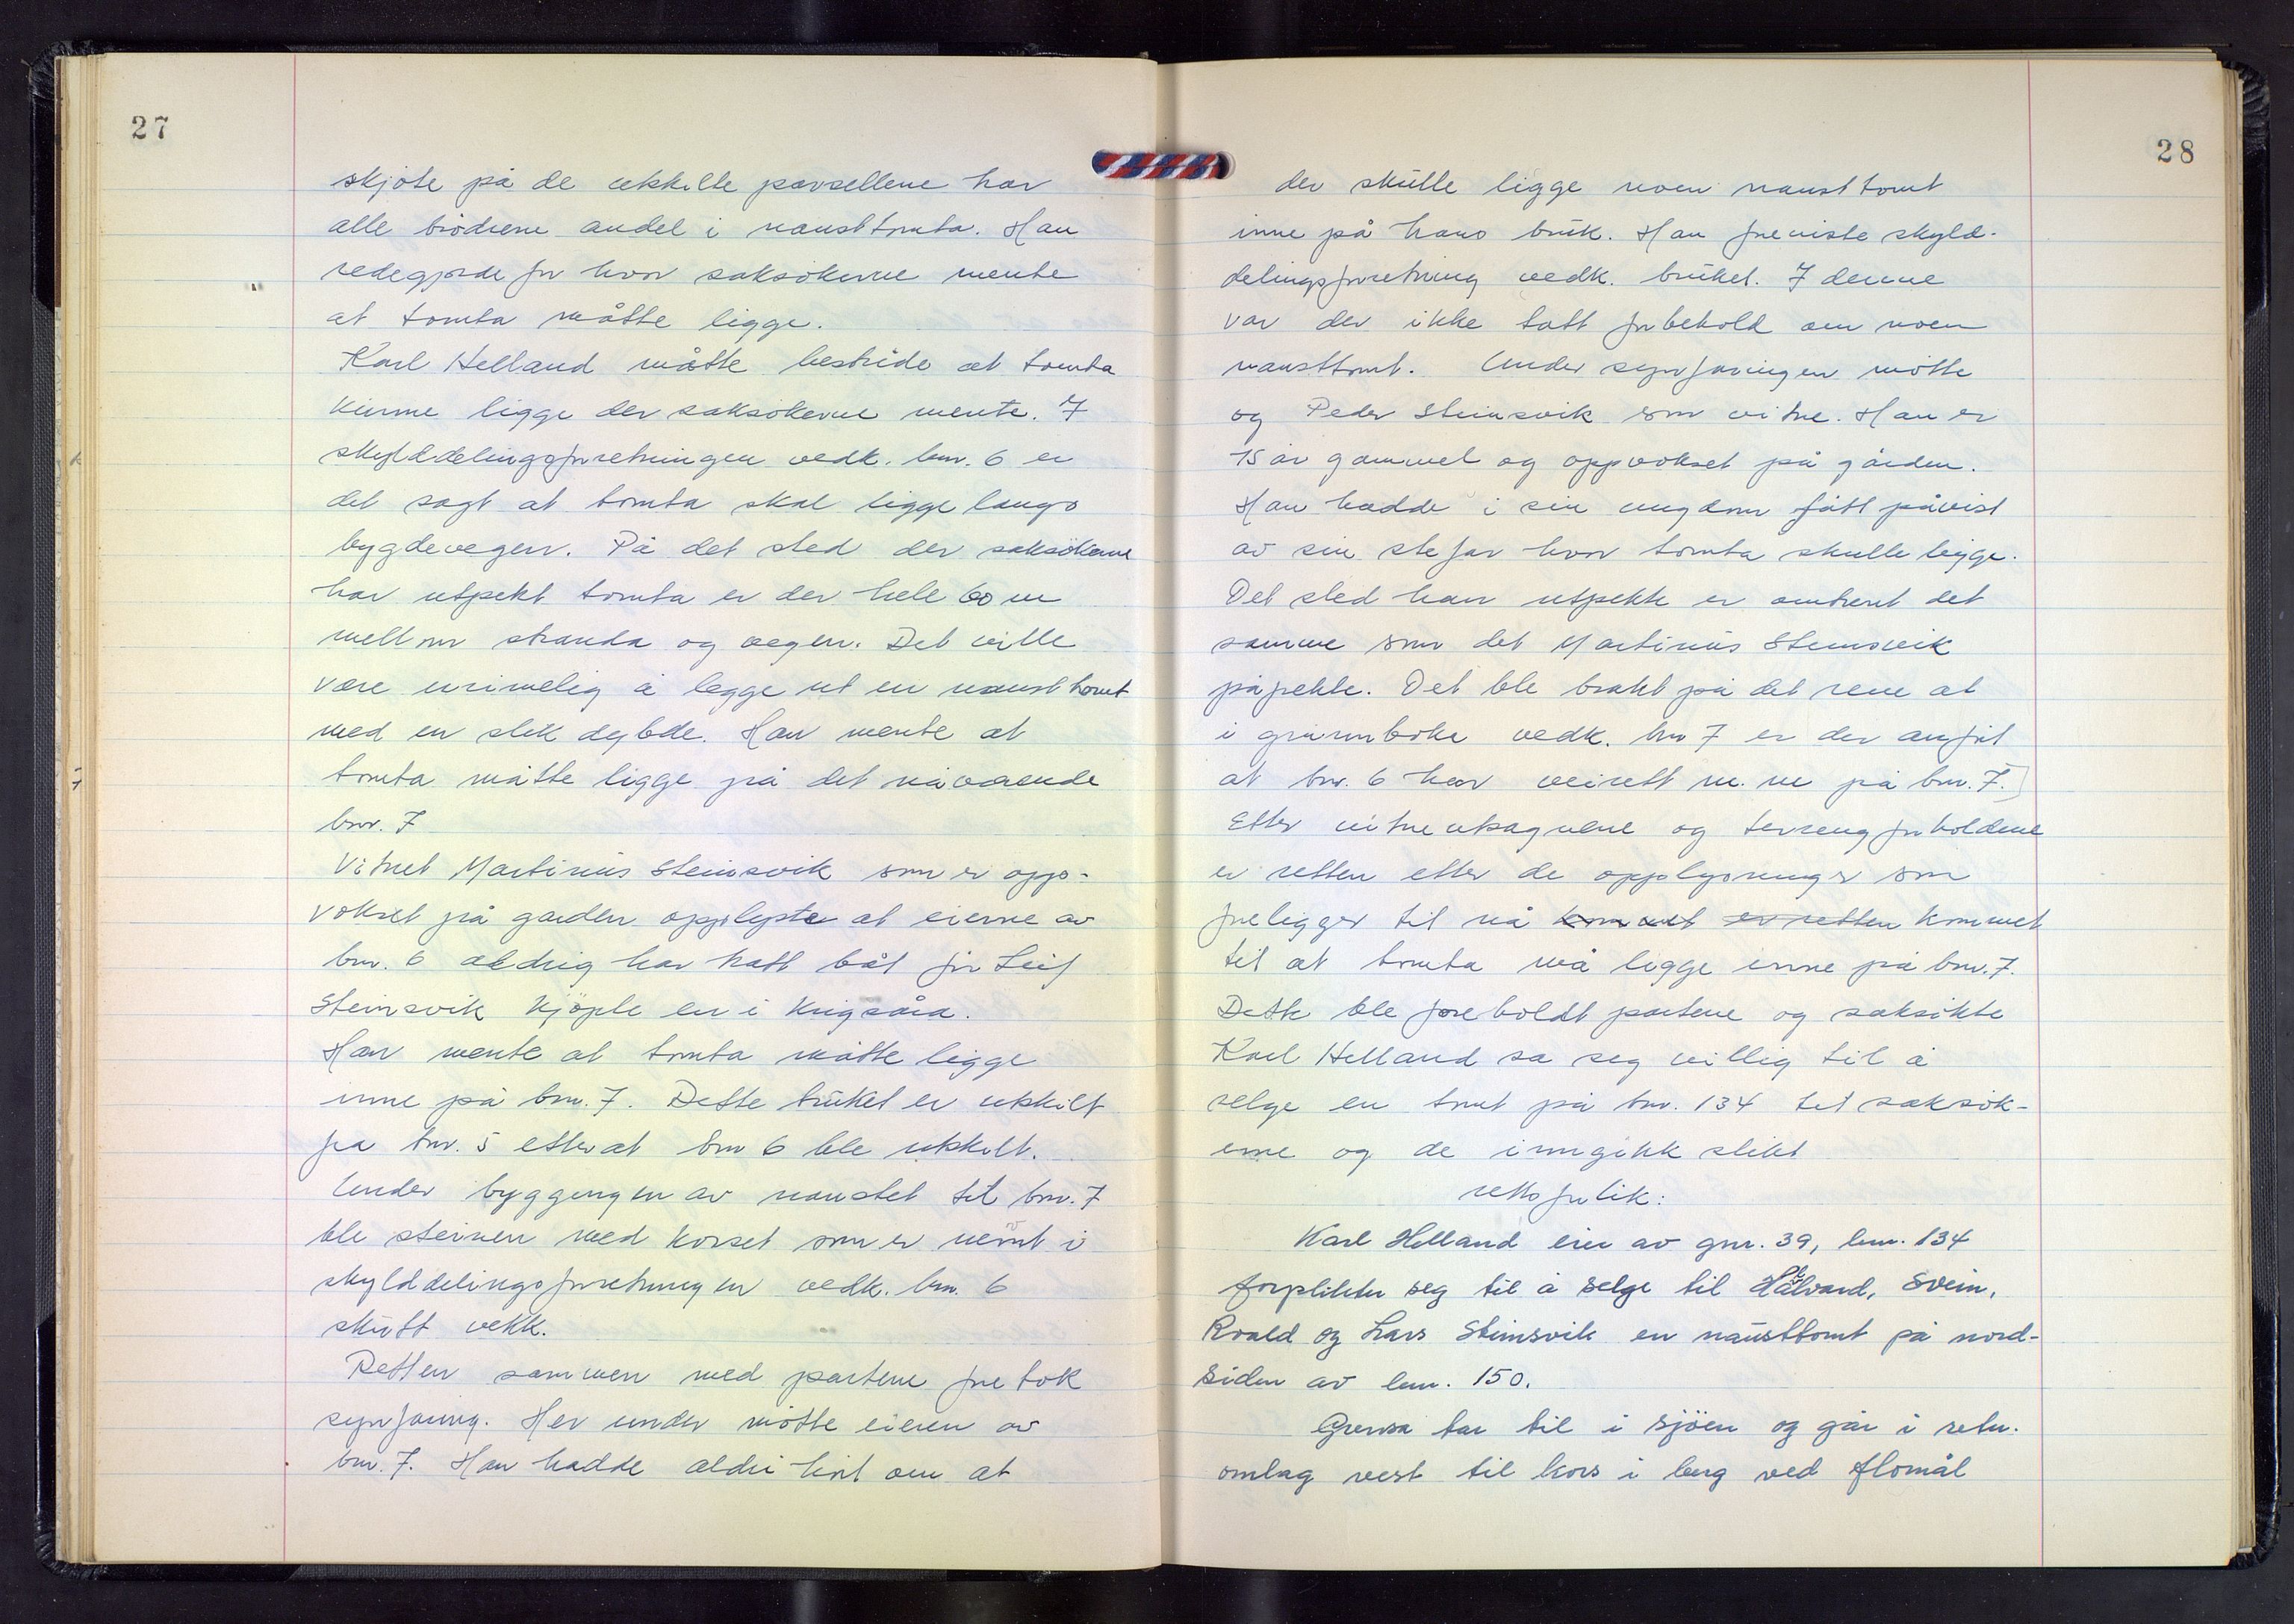 27
skjøte på de utskilte parsellene har
alle brödrene andel i nausttomta. Han
redegjorde for hvor saksökerne mente
at tomta måtte ligge.
Karl Helland måtte bestride at tomta
kunne ligge der saksökerne mente. I
skylddelingsforretningen vedk. bnr. 6 er
det sagt at tomta skal ligge langs
bygdevegen. På det sted der saksökerne
har utpekt tomta er der hele 60 m
mellom stranda og vegen. Det ville
være urimelig å legge ut en nausttomt
med en slik dybde. Han mente at
tomta måtte ligge på det nåværende
bnr. 7
Vitnet Martinius Steinsvik som er opp-
vokset på garden opplyste at eierne av
bnr. 6 aldrig har hatt båt før Leif
Steinsvik kjöpte en i krigsåra.
Han mente at tomta måtte ligge
inne på bnr. 7. Dette bruket er utskilt
fra bnr. 5 etter at bnr 6 ble utskilt.
Under byggingen av naustet til bnr. 7
ble steinen med korset som er nevnt i
skylddelingsforretningen vedk. bnr. 6
skutt vekk.
Retten sammen med partene foretok
synfaring. Her under møtte eieren av
bnr. 7. Han hadde aldri hørt om at
28
der skulle ligge noen nausttomt
inne på hans bruk. Han foreviste skyld-
delingsforretning vedk. bruket. I denne
var der ikke tatt forbehold om noen
nausttomt. Under synfaringen møtte
og Peder Steinsvik som vitne. Han er
75 år gammel og oppvokset på gården.
Han hadde i sin ungdom fått påvist
av sin stefar hvor tomta skulle ligge.
Det sted han utpekte er omtrent det
samme som det Martinius Steinsvik
påpekte. Det ble brakt på det rene at
i grunnboka vedk. bnr 7 er der anført
at bnr. 6 har veirett m. m på bnr. 7.
Etter vitneutsagnene og terrengforholdene
er retten etter de opplysninger som
foreligger til nå kommet er retten kommet
til at tomta må ligge inne på bnr. 7.
Dette ble foreholdt partene og saksøkte
Karl Helland sa seg villig til å
selge en tomt på bnr. 134 til saksök-
erne og de inngikk slikt
rettsforlik:
Karl Helland eier av gnr. 39, bnr. 134
forplikter seg til å selge til Hallvard, Svein,
Roald og Lars Steinsvik en nausttomt på nord-
siden av bnr. 150.
Grensa tar til i sjöen og går i retn.
omlag vest til kors i berg ved flomål